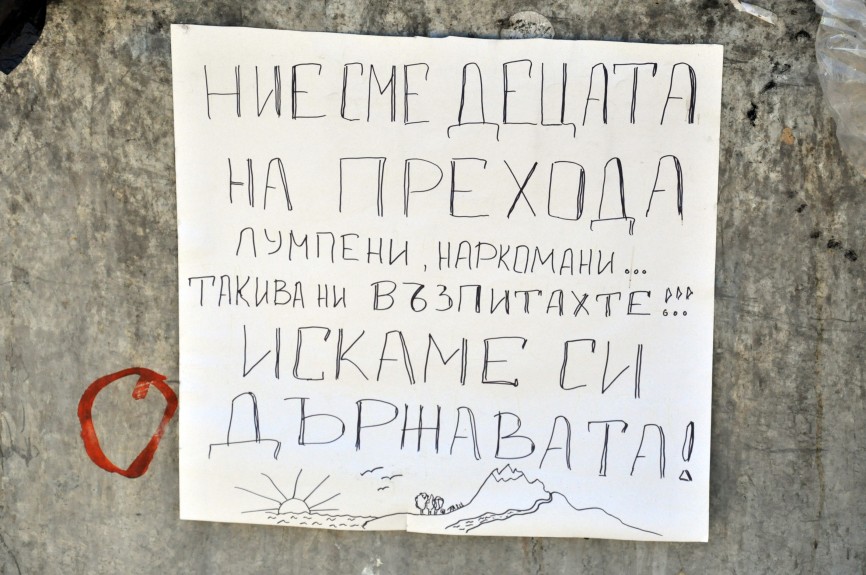 НИЕ СМЕ ДЕЦАТА
НА ПРЕХОДА
ЛУМПЕНИ, НАРКОМАНИ...
ТАКИВА НИ ВЪЗПИТАХТЕ!!!
ИСКАМЕ СИ
ДЪРЖАВАТА!